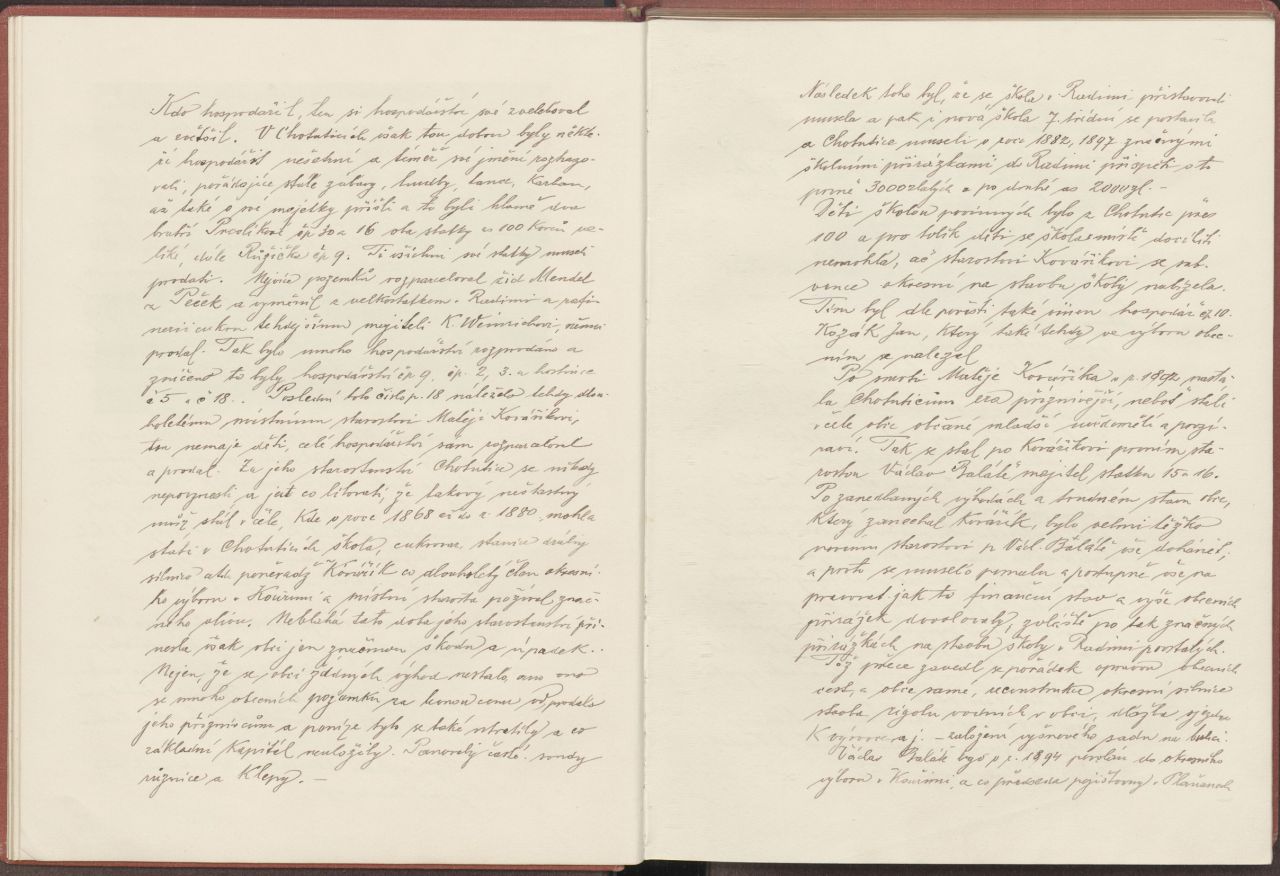 Kdo hospodařil, ten si hospodářství své zveleboval
a zvětšil. V Chotuticích však tou dobou byly někte-
ří hospodáři nešetrní a téměř své jmění rozhazo-
vali, pořádajíce stálé zábavy, hudby, tance, karban,
až také o své majetky přišli a to byli hlavně dva
bratři čp 30 a 16 oba statky co 100 korců ve-
liké, dále Růžička čp 9. Ti všichni své statky museli
prodati. Nejvíce pozemků rozparceloval žid Mendel
z Peček a vyměnil s velkostatkem v Radimi a rafi-
nerii cukru tehdejšímu majiteli K. Weinrichovi,
prodal. Tak bylo mnoho hospodářství rozprodáno a
zničeno to byly hospodářství čp. 9, čp. 2, 3. a hostince
č 5 a č 18. Poslední toto číslo p. 18 náleželo tehdy dlou-
holetému místnímu starostovi Matěji Kovaříkovi,
ten nemaje dětí, celé hospodářství sám rozparceloval
a prodal. Za jeho starostenství Chotutice se nikdy
nepovznesli, a jest co litovati, že takový nešťastný
muž stál v čele, kde v roce 1868 až do r 1880 mohla
státi v Chotuticích škola, cukrovar, stanice dráhy
silnice atd. poněvadž Kovářík co dlouholetý člen okresní-
ho výboru v Kouřimi a místní starosta požíval znač-
ného vlivu. Neblahá tato doba jeho starostenství při-
nesla však obci jen značnou škodu a úpadek.
Nejen, že se obci žádných výhod nestalo, ano ono
se mnoho obecních pozemků za levnou cenu prodalo
jeho příznivcům a peníze tyto se také utratily a co
základní kapitál neuložily. Panovaly časté soudy
různice a klepy. —
Následek toho byl, že se škola v Radimi přistavovati
musela a pak i nová škola 7. třídní se postavila
a Chotutice museli v roce 1882, 1897 značnými
školními přirážkami do Radimi přispěti a to
prvně 3000 zlatých a po druhé as 2000 zl. —
Dětí školou povinných bylo z Chotutic přes
100 a pro tolik dětí se škola v místě docíliti
nemohla, ač starostovi Kovaříkovi se sub-
vence okresní na stavbu školy nabízela.
Tím byl dle pověsti také vinen hospodář čp 10.
Kozák Jan, který také tehdy ve výboru obec-
ním se nalezal
Po smrti Matěje Kováříka v r. 1892 nasta-
la Chotuticům éra příznivější, neboť stáli
v čele obce občané mladší uvědomělí a pozi-
raví. Tak se stal po Kovaříkovi prvním sta-
rostou Václav Balák majitel statku 15 a 16.
Po zanedbaných výhodách a trudném stavu obce,
který zanechal Kovářík, bylo velmi těžko
novému starostovi p Václ. Balákovi vše doháněti,
a proto se muselo pomalu a postupně vše na
pravovati jak to finanční stav a výše obecních
přirážek dovolovaly, zvláště po tak značných
přirážkách na stavbu školy v Radimi povstalých.
Též přece zavedl se pořádek opravou obecních
cest, a obce samé, reconstrukce okresní silnice
stavba rigolu vodních v obci, dlažba vjezdu
k a j. — založení višňového sadu na
Václav Balák byv v r. 1894 povolán do okresního
výboru v Kouřimi, a co předseda pojišťovny v Plaňanech